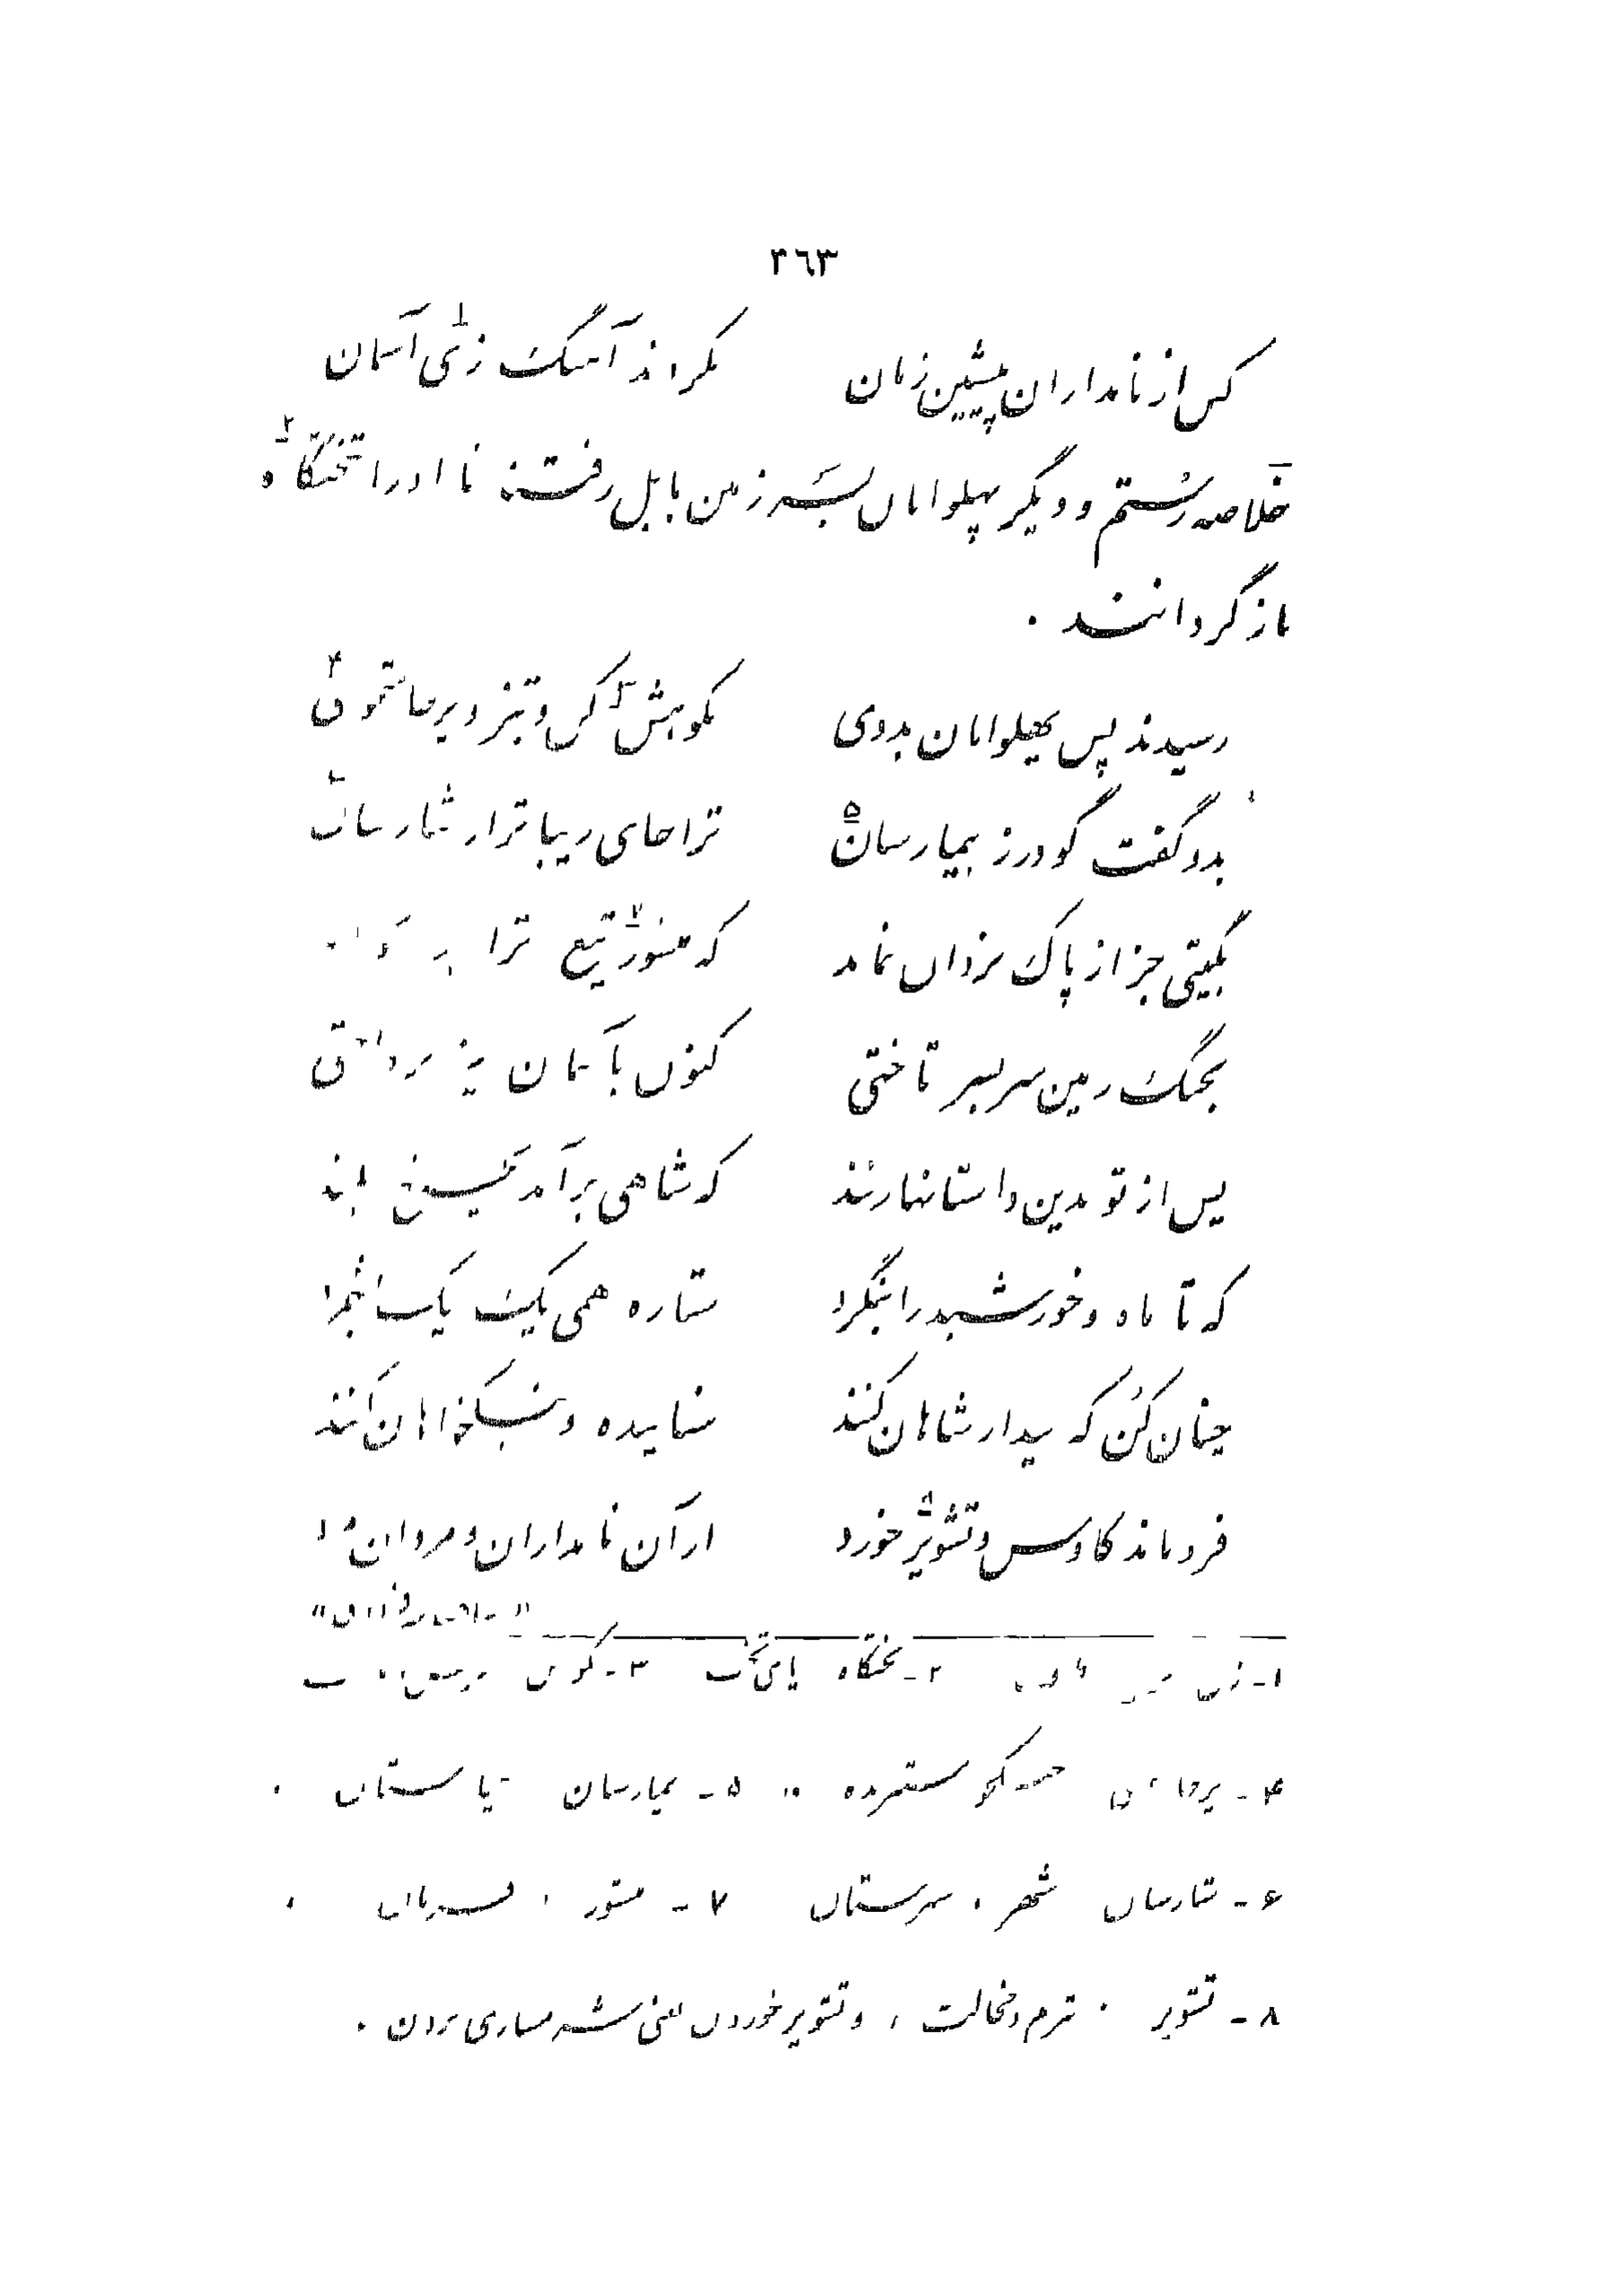 ٣٦٣
کس از نامداران پیشین زمان    نکرداند آهنگ زی ۱ آسمان
خلاصه رستم و دیگر پهلوانان بسرزمین بابل رفتند تا او را بتختگاه ۲
بازگردانند .
رسیدند پس پهلوانان بدوی    نکوهش ۳ کن و تیز و پرخاشجوی ۴
بدو گفت گودرز بیمارسان ۵    ترا جای زیباتر از شارسان ۶
بگیتی جز از پاک یزدان نماند    که منشور ۷ تیغ ترا بر نخواند
بجنگ زمین سربسر تاختی    کنون بآسمان نیز پرداختی
پس از تو بدین داستانها زنند    که شاهی برآمد بچرخ بلند
که تا ماه و خورشید را بنگرد    ستاره همی یک بیک بشمرد
چنان کن که بیدار شاهان کنند    ستاینده و نیکخواهان کنند
فروماند کاوس و تشویر ۸ خورد    از آن نامداران و مردان مرد
۱ - زی    ۲ - تختگاه پایتخت    ۳ -
۴ -    ۵ - بیمارسان بیمارستان .
۶ - شارسان شهر ، شهرستان    ۷ - منشور ،
۸ - تشویر . شرم و خجالت ، و تشویر خوردن یعنی شرمساری بردن .